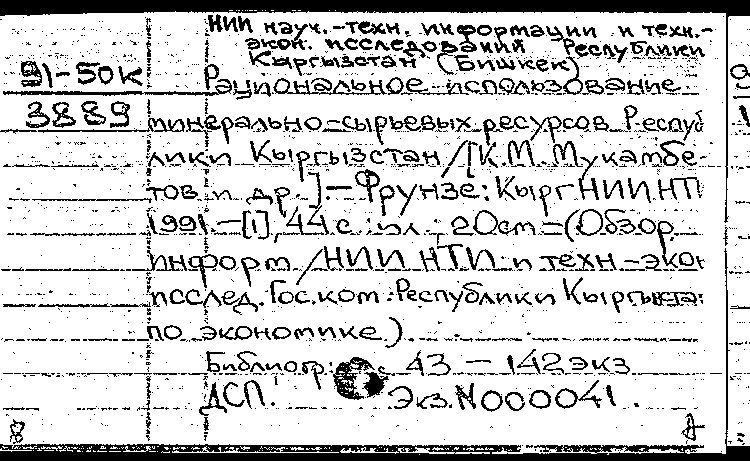 НИИ науч.-техн. информации и техн.-
экон. исследований Республики
Кыргызстан (Бишкек)
91-50к
Рациональное использование
3889
минерально-сырьевых ресурсов Респуб
лики Кыргызстан / [К.М. Мукамбе-
тов и др.].-Фрунзе: КыргНИИНТИ
1991.-[1], 44 с : ил ; 20см -(Обзор.
информ / НИИ НТИ и техн-экон
исслед. Гос.ком. Республики Кыргызстан
по экономике)
Библиогр: с 43 - 142 экз
ДСП. Экз. N000041.
8